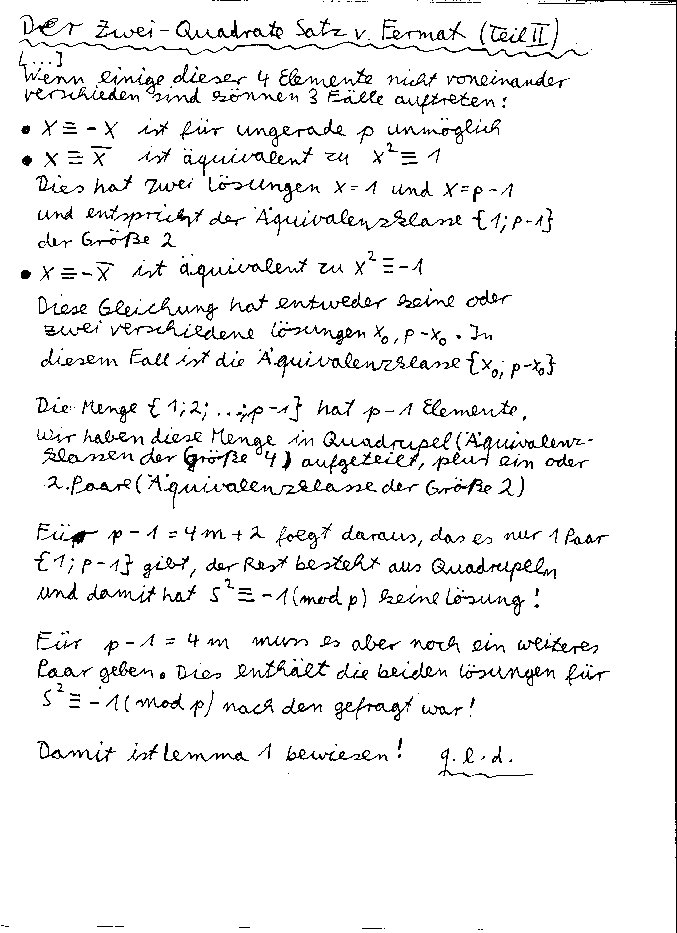 Der Zwei-Quadrate Satz v. Fermat (Teil II)
[...]
Wenn einige dieser 4 Elemente nicht voneinander
verschieden sind können 3 Fälle auftreten:
• X ≡ -X ist für ungerade p unmöglich
• X ≡ X̅ ist äquivalent zu X² ≡ 1
Dies hat zwei Lösungen X=1 und X=p-1
und entspricht der Äquivalenzklasse {1; p-1}
der Größe 2
• X ≡ -X̅ ist äquivalent zu X² ≡ -1
Diese Gleichung hat entweder keine oder
zwei verschiedene Lösungen x₀, p-x₀. In
diesem Fall ist die Äquivalenzklasse {x₀; p-x₀}
Die Menge {1; 2; ...; p-1} hat p-1 Elemente,
wir haben diese Menge in Quadrupel (Äquivalenz-
klassen der Größe 4) aufgeteilt, plus ein oder
2. Paare (Äquivalenzklasse der Größe 2)
Für p-1 = 4m+2 folgt daraus, das es nur 1 Paar
{1; p-1} gibt, der Rest besteht aus Quadrupeln
und damit hat S² ≡ -1 (mod p) keine Lösung!
Für p-1 = 4m muss es aber noch ein weiteres
Paar geben. Dies enthält die beiden Lösungen für
S² ≡ -1 (mod p) nach den gefragt war!
Damit ist Lemma 1 bewiesen! q.e.d.